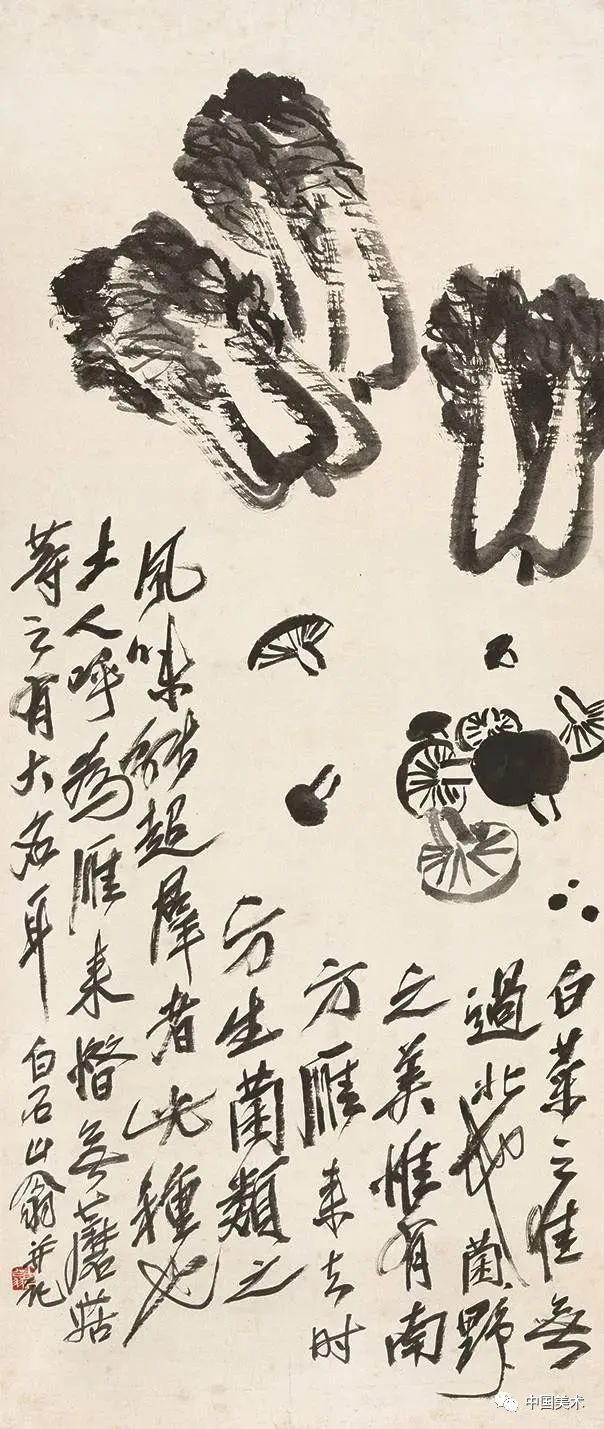 白菜之佳無
過北地菌野
之美惟有南
方雁来去时
方生菌類之
風味能超羣者此種也
土人呼為雁来無蘑菇
等之有大名耳
白石山翁并記
中国美术